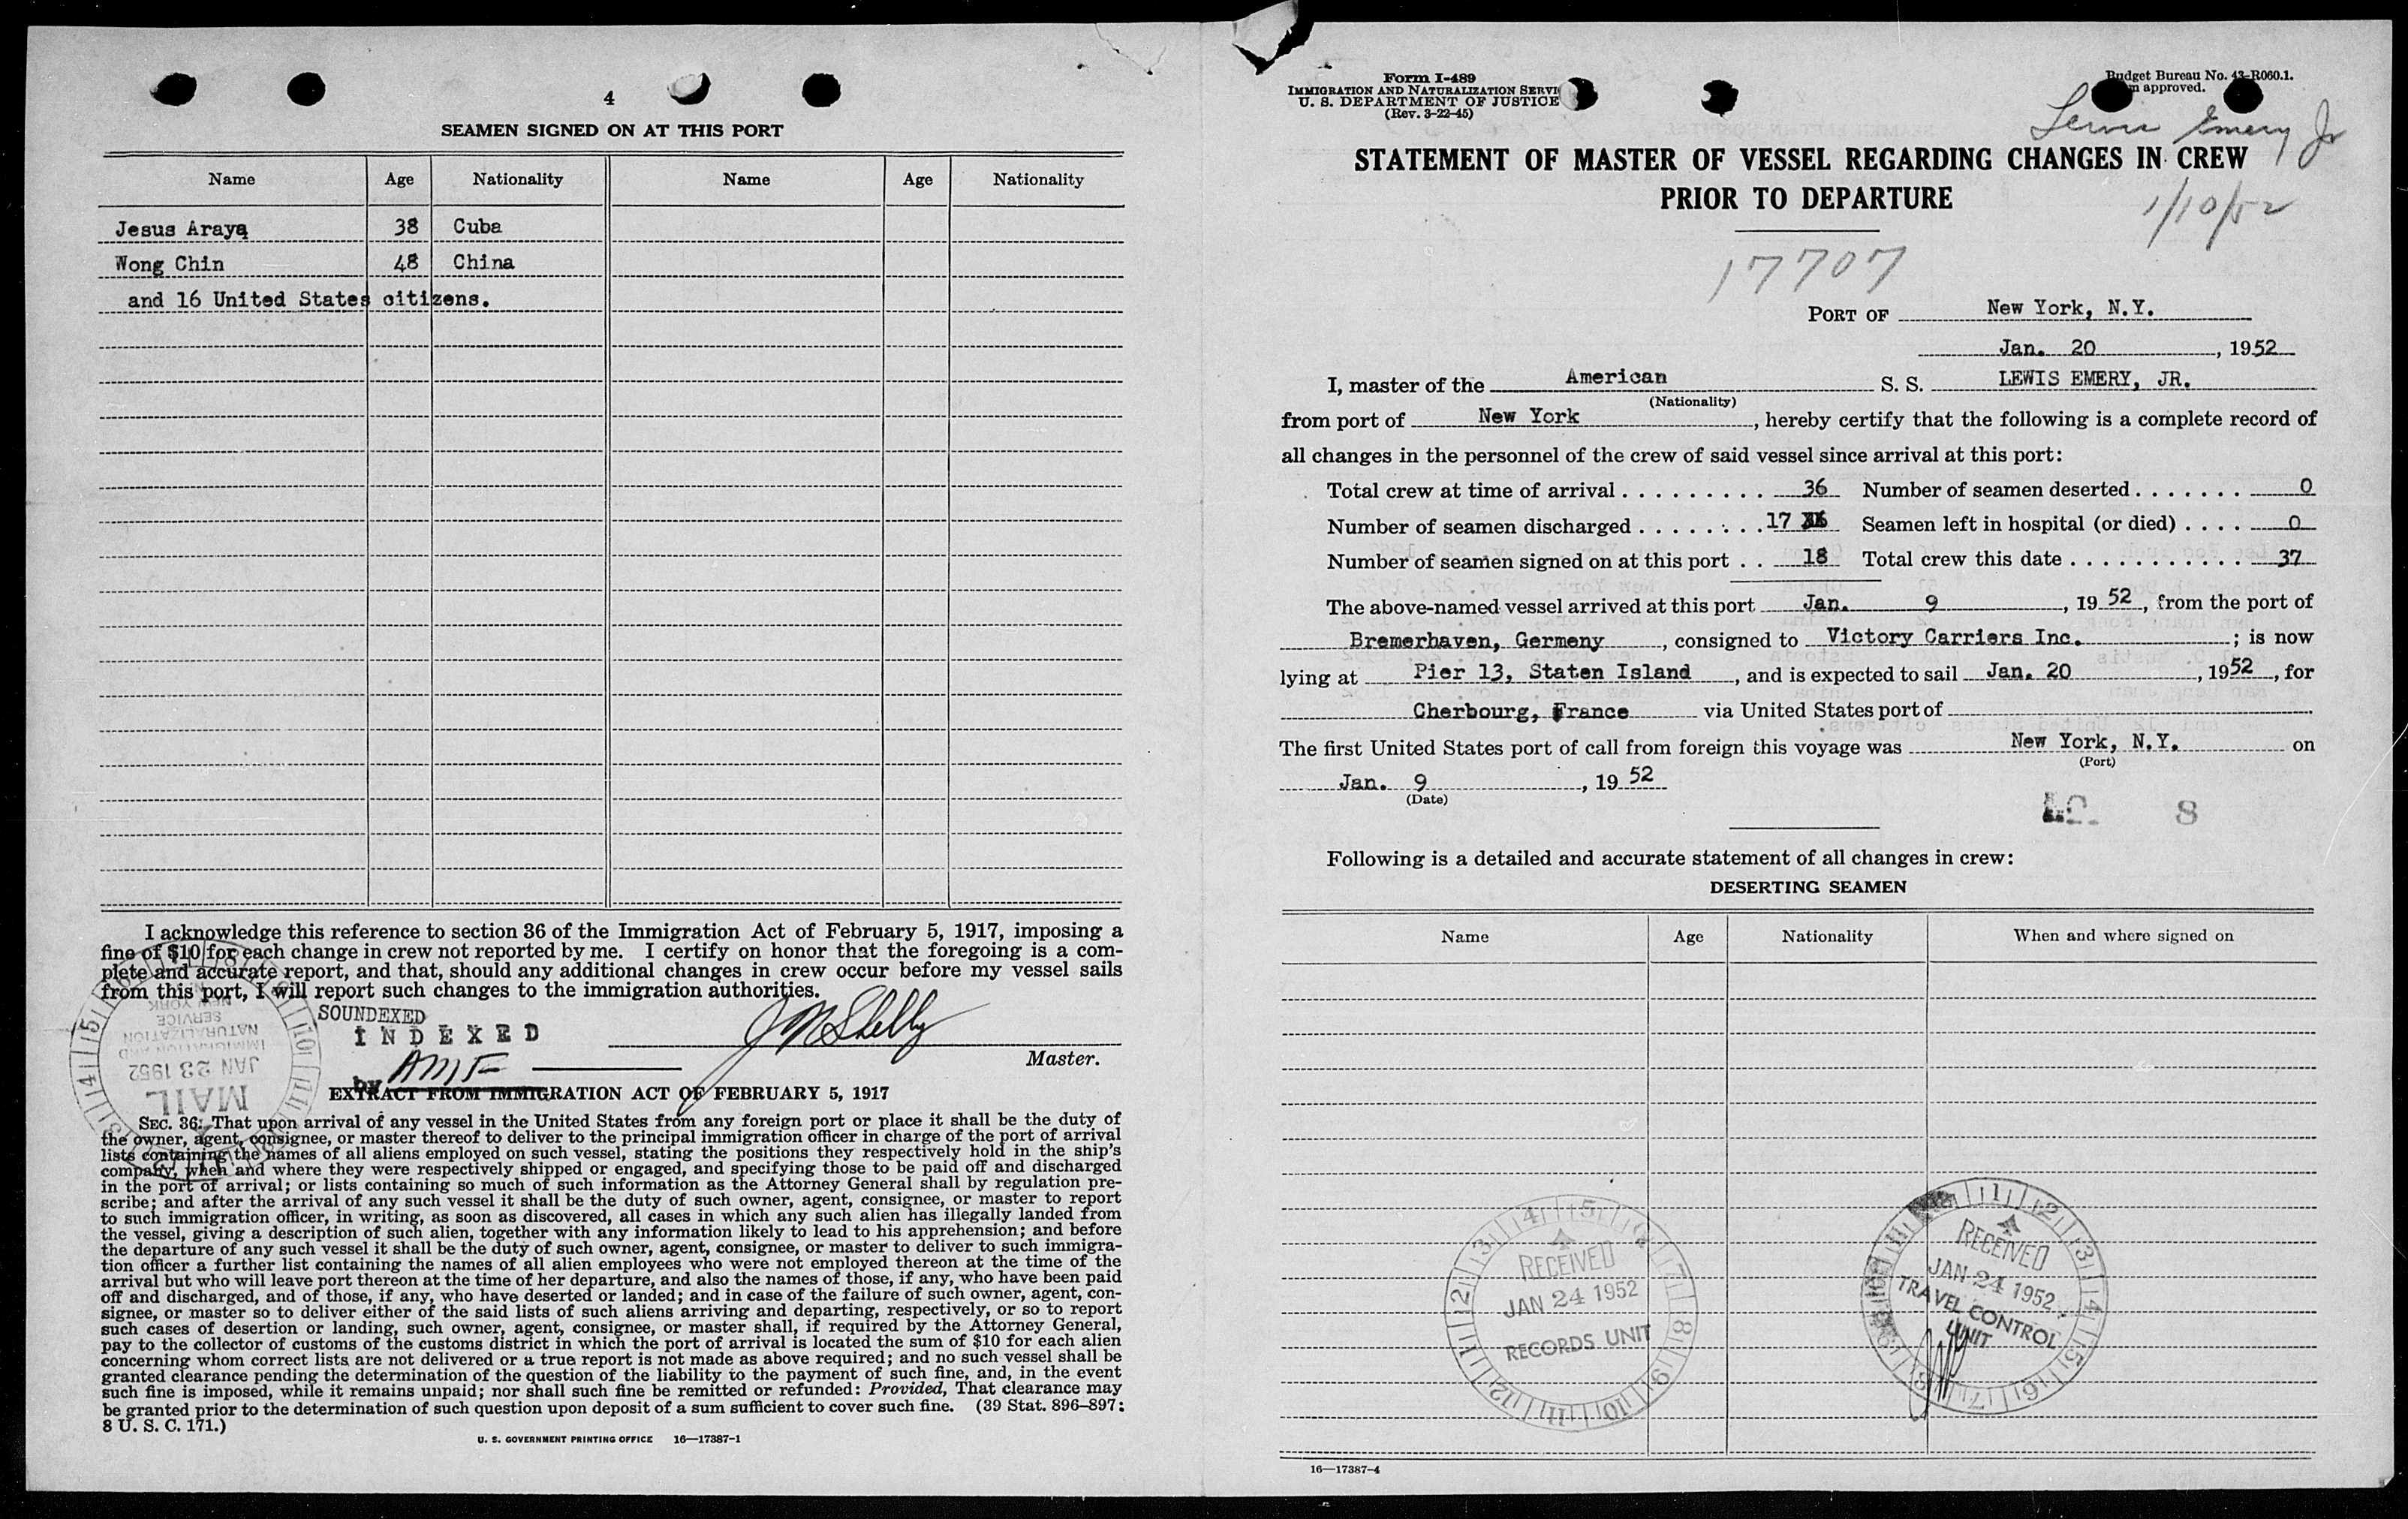 4
SEAMEN SIGNED ON AT THIS PORT
Name Age Nationality Name Age Nationality
Jesus Araya 38 Cuba
Wong Chin 48 China
and 16 United States citizens.
I acknowledge this reference to section 36 of the Immigration Act of February 5, 1917, imposing a
fine of $10 for each change in crew not reported by me. I certify on honor that the foregoing is a com-
plete and accurate report, and that, should any additional changes in crew occur before my vessel sails
from this port, I will report such changes to the immigration authorities.
SOUNDEXED
INDEXED
J M Shelly
Master.
by AMF
EXTRACT FROM IMMIGRATION ACT OF FEBRUARY 5, 1917
IMMIGRATION AND
NATURALIZATION
SERVICE
NEW YORK
JAN 23 1952
MAIL
SEC. 36. That upon arrival of any vessel in the United States from any foreign port or place it shall be the duty of
the owner, agent, consignee, or master thereof to deliver to the principal immigration officer in charge of the port of arrival
lists containing the names of all aliens employed on such vessel, stating the positions they respectively hold in the ship's
company, when and where they were respectively shipped or engaged, and specifying those to be paid off and discharged
in the port of arrival; or lists containing so much of such information as the Attorney General shall by regulation pre-
scribe; and after the arrival of any such vessel it shall be the duty of such owner, agent, consignee, or master to report
to such immigration officer, in writing, as soon as discovered, all cases in which any such alien has illegally landed from
the vessel, giving a description of such alien, together with any information likely to lead to his apprehension; and before
the departure of any such vessel it shall be the duty of such owner, agent, consignee, or master to deliver to such immigra-
tion officer a further list containing the names of all alien employees who were not employed thereon at the time of the
arrival but who will leave port thereon at the time of her departure, and also the names of those, if any, who have been paid
off and discharged, and of those, if any, who have deserted or landed; and in case of the failure of such owner, agent, con-
signee, or master so to deliver either of the said lists of such aliens arriving and departing, respectively, or so to report
such cases of desertion or landing, such owner, agent, consignee, or master shall, if required by the Attorney General,
pay to the collector of customs of the customs district in which the port of arrival is located the sum of $10 for each alien
concerning whom correct lists are not delivered or a true report is not made as above required; and no such vessel shall be
granted clearance pending the determination of the question of the liability to the payment of such fine, and, in the event
such fine is imposed, while it remains unpaid; nor shall such fine be remitted or refunded: Provided, That clearance may
be granted prior to the determination of such question upon deposit of a sum sufficient to cover such fine. (39 Stat. 896–897;
8 U. S. C. 171.)
U. S. GOVERNMENT PRINTING OFFICE 16—17387-1
Form I-489
IMMIGRATION AND NATURALIZATION SERVI
U. S. DEPARTMENT OF JUSTICE
(Rev. 3-22-45)
Budget Bureau No. 43-R060.1.
approved.
Lewis Emery Jr
STATEMENT OF MASTER OF VESSEL REGARDING CHANGES IN CREW
PRIOR TO DEPARTURE
1/10/52
17707
PORT OF New York, N.Y.
Jan. 20, 1952
I, master of the American S. S. LEWIS EMERY, JR.
(Nationality)
from port of New York, hereby certify that the following is a complete record of
all changes in the personnel of the crew of said vessel since arrival at this port:
Total crew at time of arrival . . . . . . . . . 36 Number of seamen deserted . . . . . . . 0
Number of seamen discharged . . . . . . . . 17 Seamen left in hospital (or died) . . . . 0
Number of seamen signed on at this port . . 18 Total crew this date . . . . . . . . . . . 37
The above-named vessel arrived at this port Jan. 9, 1952, from the port of
Bremerhaven, Germeny, consigned to Victory Carriers Inc.; is now
lying at Pier 13, Staten Island, and is expected to sail Jan. 20, 1952, for
Cherbourg, France via United States port of
The first United States port of call from foreign this voyage was New York, N.Y. on
(Port)
Jan. 9, 1952
(Date)
8
Following is a detailed and accurate statement of all changes in crew:
DESERTING SEAMEN
Name Age Nationality When and where signed on
RECEIVED
JAN 24 1952
RECORDS UNIT
RECEIVED
JAN 24 1952
TRAVEL CONTROL
UNIT
16—17387-4